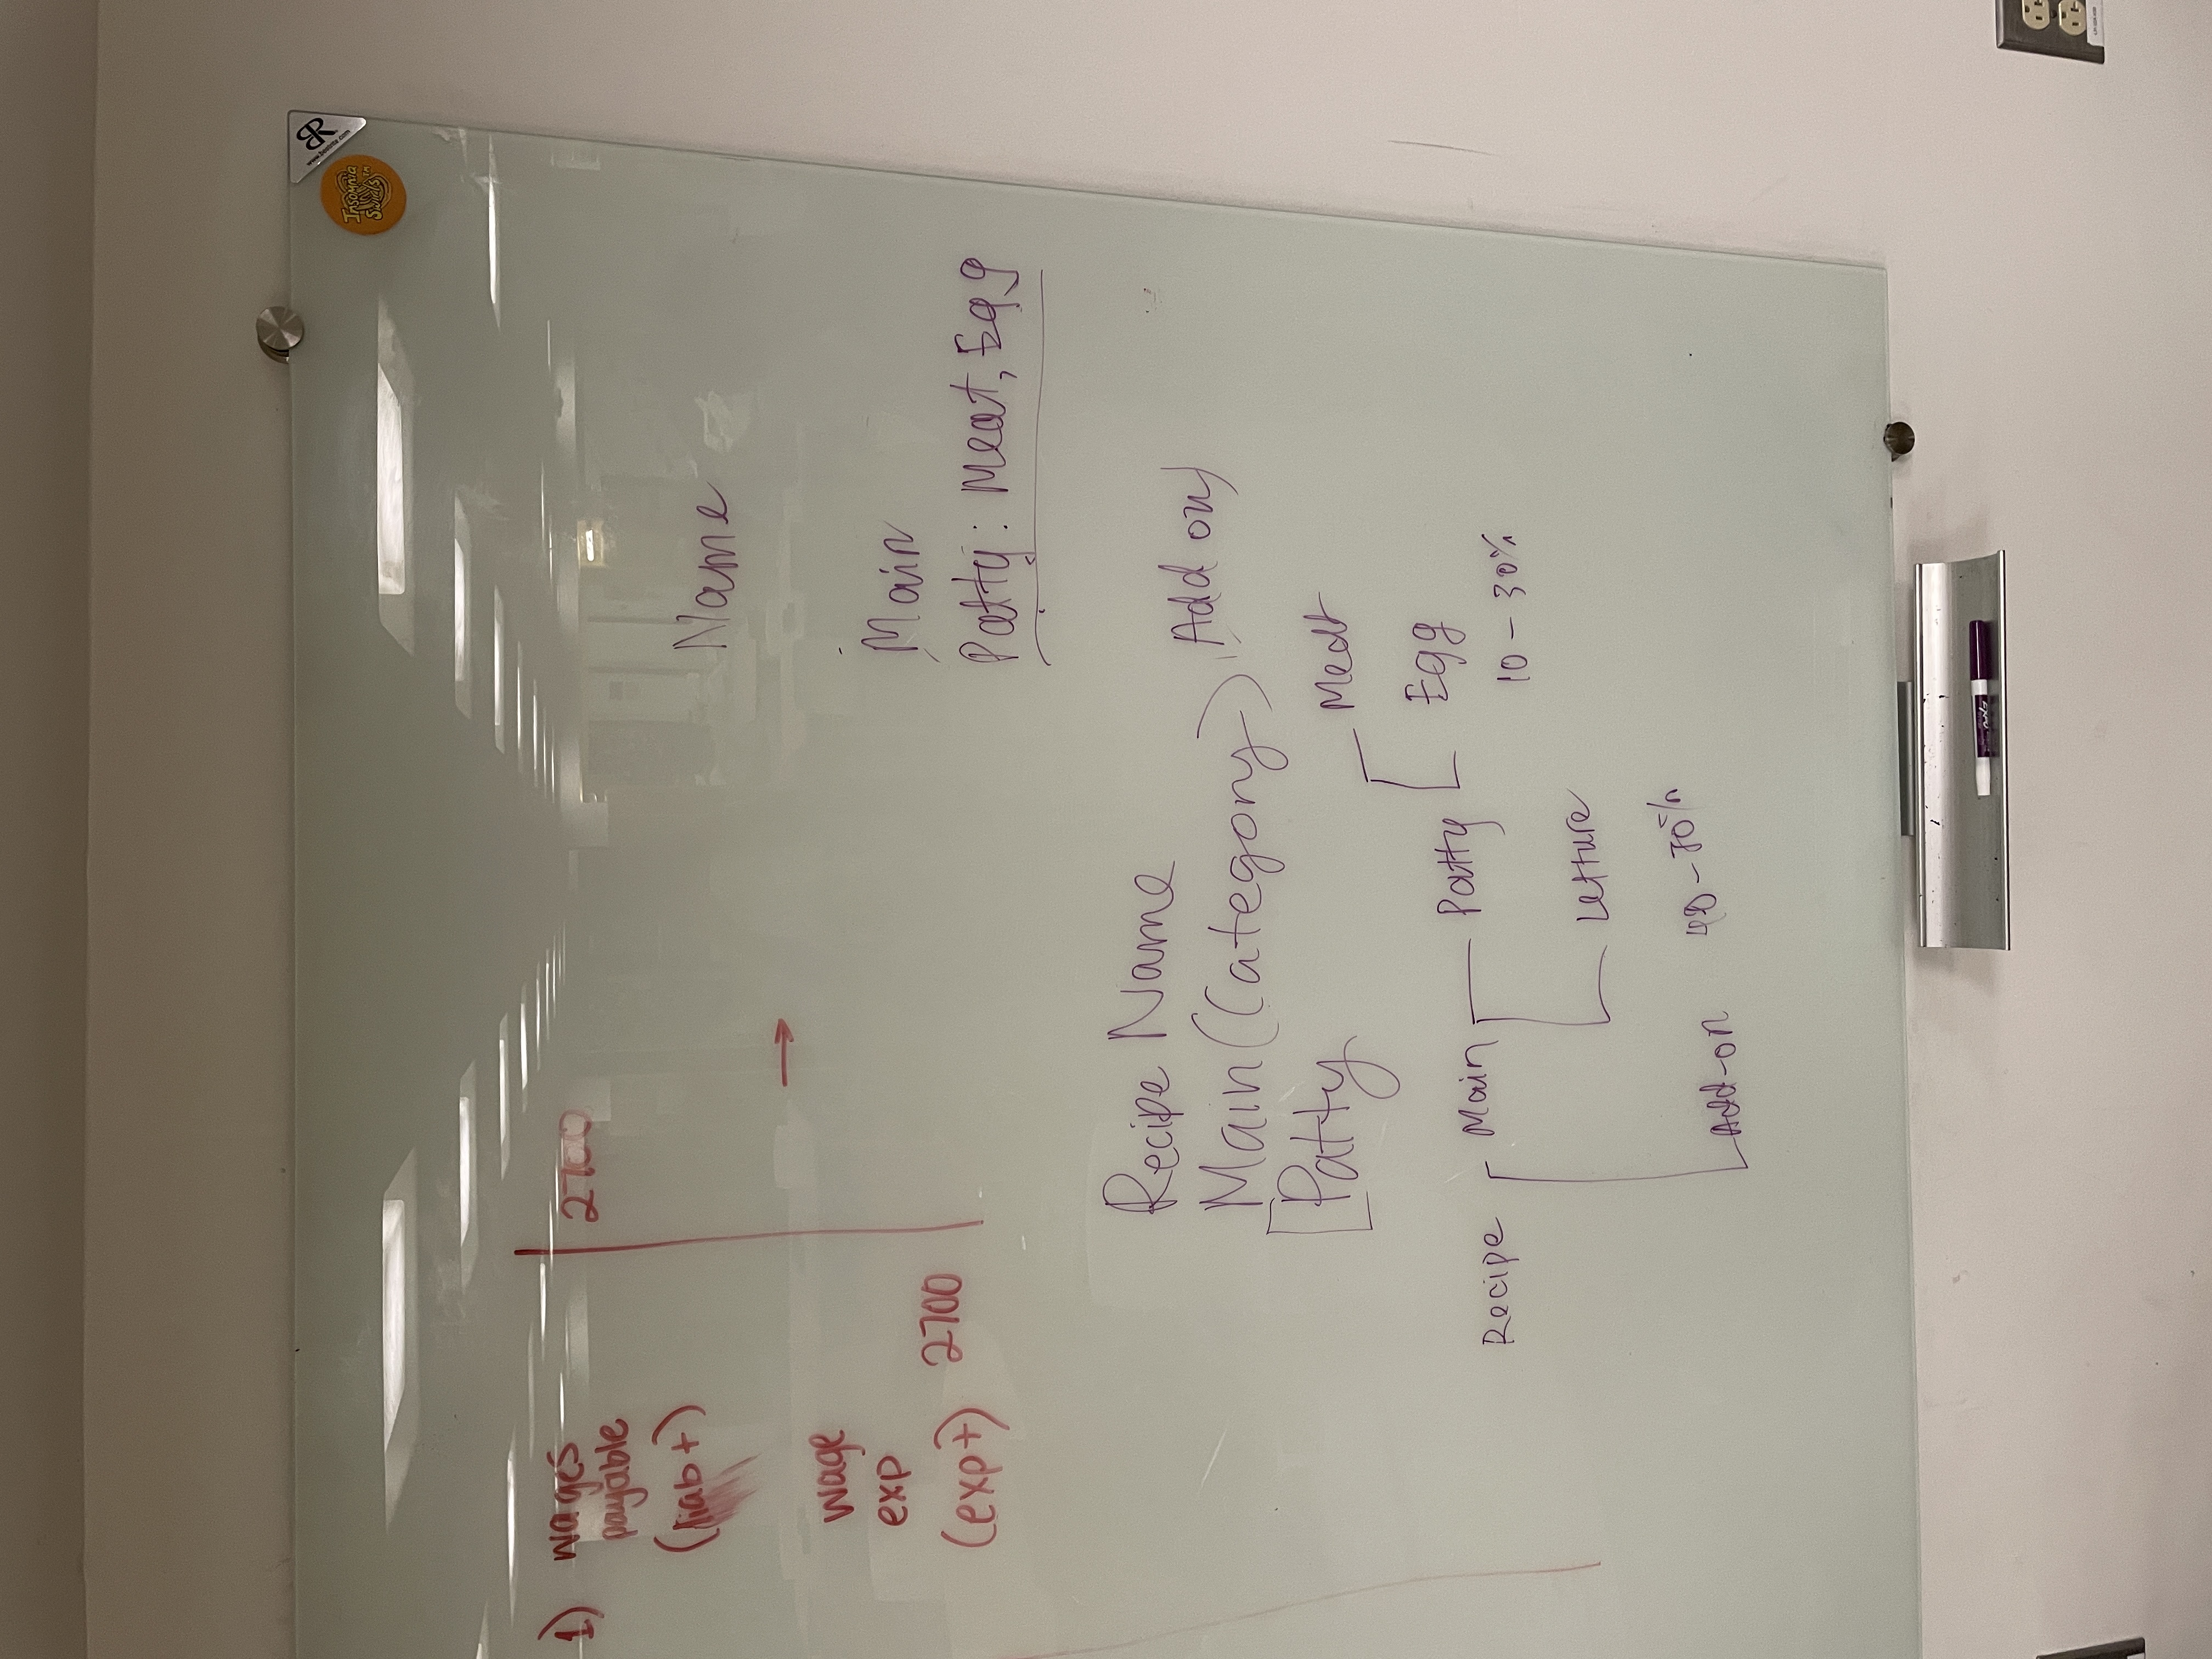 1) wages
payable
(liab +)
2700
wage
exp
(exp+) 2700
→
Name
Main
Patty: Meat, Egg
Recipe Name
Main (Category) Add on
Patty
Recipe
Main
Patty
Meat
Egg
10 - 30%
Letture
Add-on
BR
Insomnia